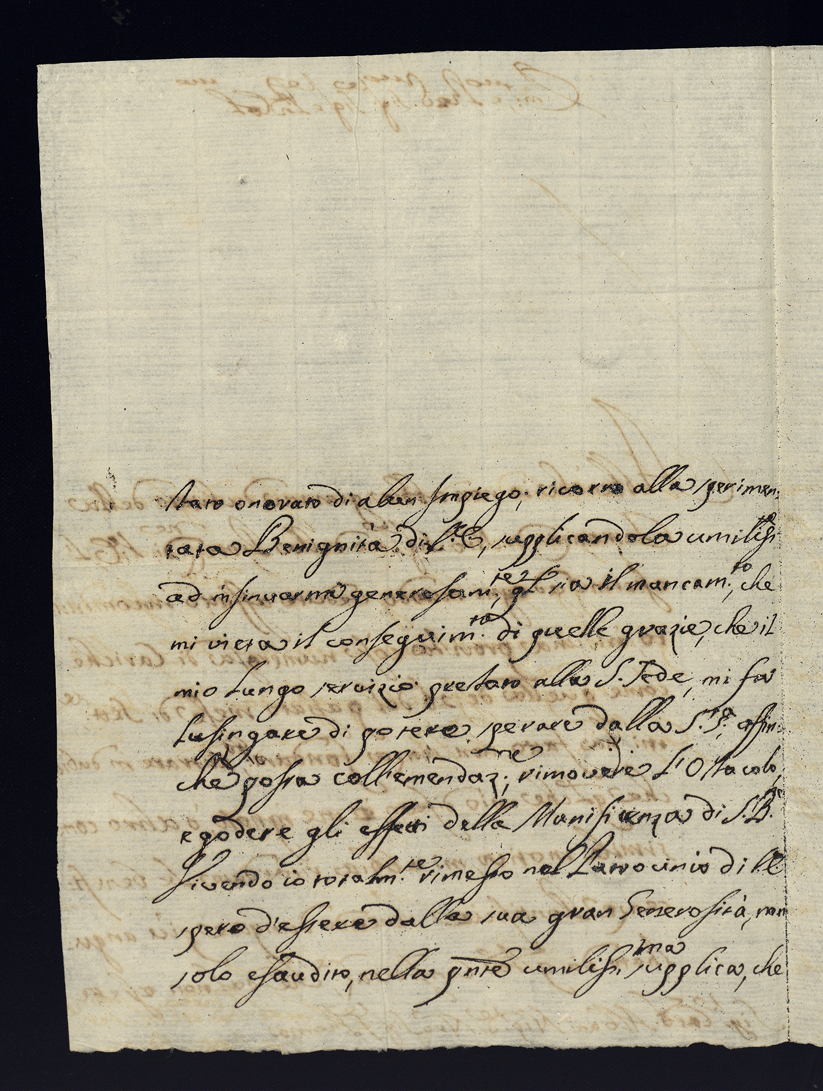 stato onorato di alcun Impiego; ricorro alla sperimen:
tata Benignità di V.E., supplicandola umiliss.te
ad insinuarmi generosam.te, qual sia il mancam.to, che
mi vieta il conseguim.to di quelle grazie, che il
mio lungo servizio prestato alla S. Sede, mi fa
lusingare di potere sperare dalla S.S.tà, affin:
che possa coll'emendaz.ne, rimovere l'Ostacolo,
e godere gli effetti della Munificenza di S.B.e
Vivendo io totalm.te rimesso nel Patrocinio di V.E.
spero d'essere dalla sua gran Generosità, non
solo esaudito, nella pnte umiliss.ma supplica, che